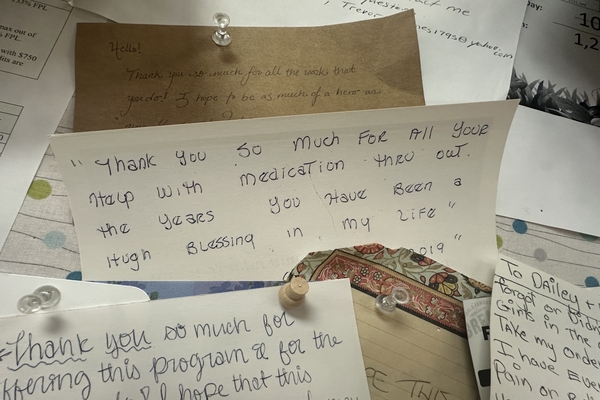 max out of
% FPL.
with $750
fits are
act me
, Trevor
1795@yahoo.com
ay:
10
1,2
Hello!
Thank you so much for all the work that
you do! I hope to be as much of a hero as
" Thank you So Much For All Your
Help with medication thru out
the years you Have Been a
Hugh Blessing in my Life "
2019 "
Thank you so much for
offering this program & for the
I hope that this
THIS
To Dailey
Forgot or Didn
Girls in the
Take my Order
I have Ever
Pain or